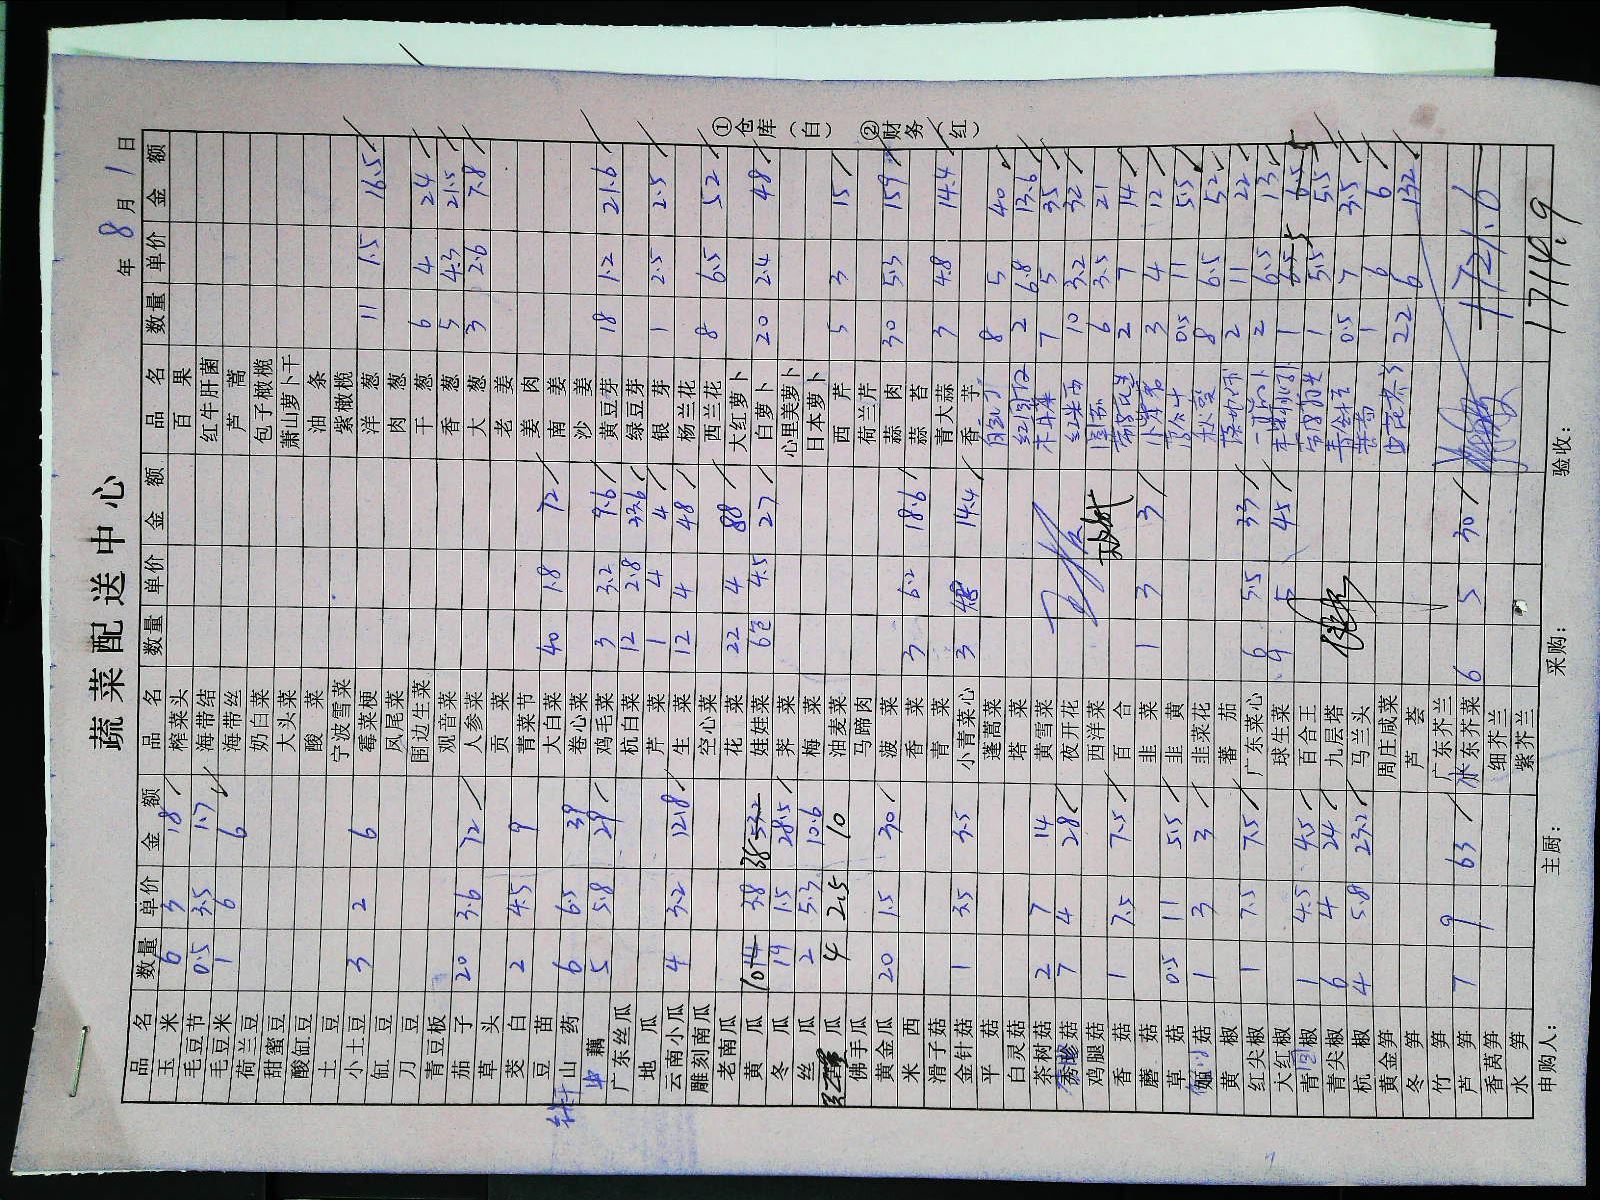 蔬菜配送中心
年 8 月 1 日
品名 数量 单价 金额 品名 数量 单价 金额 品名 数量 单价 金额
玉米 6 3 18 榨菜头 百果
毛豆节 0.5 3.5 1.7 海带结 红牛肝菌
毛豆米 1 6 6 海带丝 芦蒿
荷兰豆 奶白菜 包子橄榄
甜蜜豆 大头菜 萧山萝卜干
酸缸豆 酸菜 油条
土豆 宁波雪菜 紫橄榄
小土豆 3 2 6 霉菜梗 洋葱 11 1.5 16.5
缸豆 凤尾菜 肉葱
刀豆 围边生菜 干葱 6 4 24
青豆板 观音菜 香葱 5 4.3 21.5
茄子 20 3.6 72 人参菜 大葱 3 2.6 7.8
草头 贡菜 老姜
茭白 2 4.5 9 青菜节 姜肉
豆苗 大白菜 40 1.8 72 南姜
山药 6 6.5 39 卷心菜 沙姜
藕 5 5.8 29 鸡毛菜 3 3.2 9.6 黄豆芽 18 1.2 21.6
广东丝瓜 杭白菜 12 2.8 33.6 绿豆芽
地瓜 芹菜 1 4 4 银芽 1 2.5 2.5
云南小瓜 4 3.2 12.8 生菜 12 4 48 杨兰花
雕刻南瓜 空心菜 西兰花 8 6.5 52
老南瓜 花菜 22 4 88 大红萝卜
黄瓜 10 14 3.8 38 53.2 娃娃菜 6包 4.5 27 白萝卜 20 2.4 48
冬瓜 19 1.5 28.5 荠菜 心里美萝卜
丝瓜 2 5.3 10.6 梅菜 日本萝卜
瓜 4 2.5 10 油麦菜 西芹 5 3 15
佛手瓜 马蹄肉 荷兰芹
黄金瓜 20 1.5 30 菠菜 蒜肉 30 5.3 159
米西 香菜 3 6.2 18.6 蒜苔
滑子菇 青菜 青大蒜 3 4.8 14.4
金针菇 1 3.5 3.5 小青菜心 3 14.4 香芋
平菇 蓬蒿菜 8 5 40
白灵菇 塔菜 2 6.8 13.6
茶树菇 2 7 14 黄雪菜 木耳菜 7 5 35
秀珍菇 7 4 28 夜开花 红米西 10 3.2 32
鸡腿菇 西洋菜 6 3.5 21
香菇 1 7.5 7.5 百合 2 7 14
蘑菇 韭菜 1 3 3 3 4 12
草菇 0.5 11 5.5 韭黄 0.5 11 5.5
菇 1 3 3 韭菜花 8 6.5 52
黄椒 蕃茄 2 11 22
红尖椒 1 7.5 7.5 广东菜心 6 5.5 33 2 6.5 13
大红椒 球生菜 9 5 45 1 6.5 6.5
青圆椒 1 4.5 4.5 百合王 1 5.5 5.5
青尖椒 6 4 24 九层塔 0.5 7 3.5
杭椒 4 5.8 23.2 马兰头 1 6 6
黄金笋 周庄咸菜 22 6 132
冬笋 芦荟
竹笋 广东芥兰
芦笋 7 9 63 广东芥菜 6 5 30 1721.6
香莴笋 细芥兰
水笋 紫芥兰 1714.9
申购人： 主厨： 采购： 验收：
①仓库（白） ②财务（红）